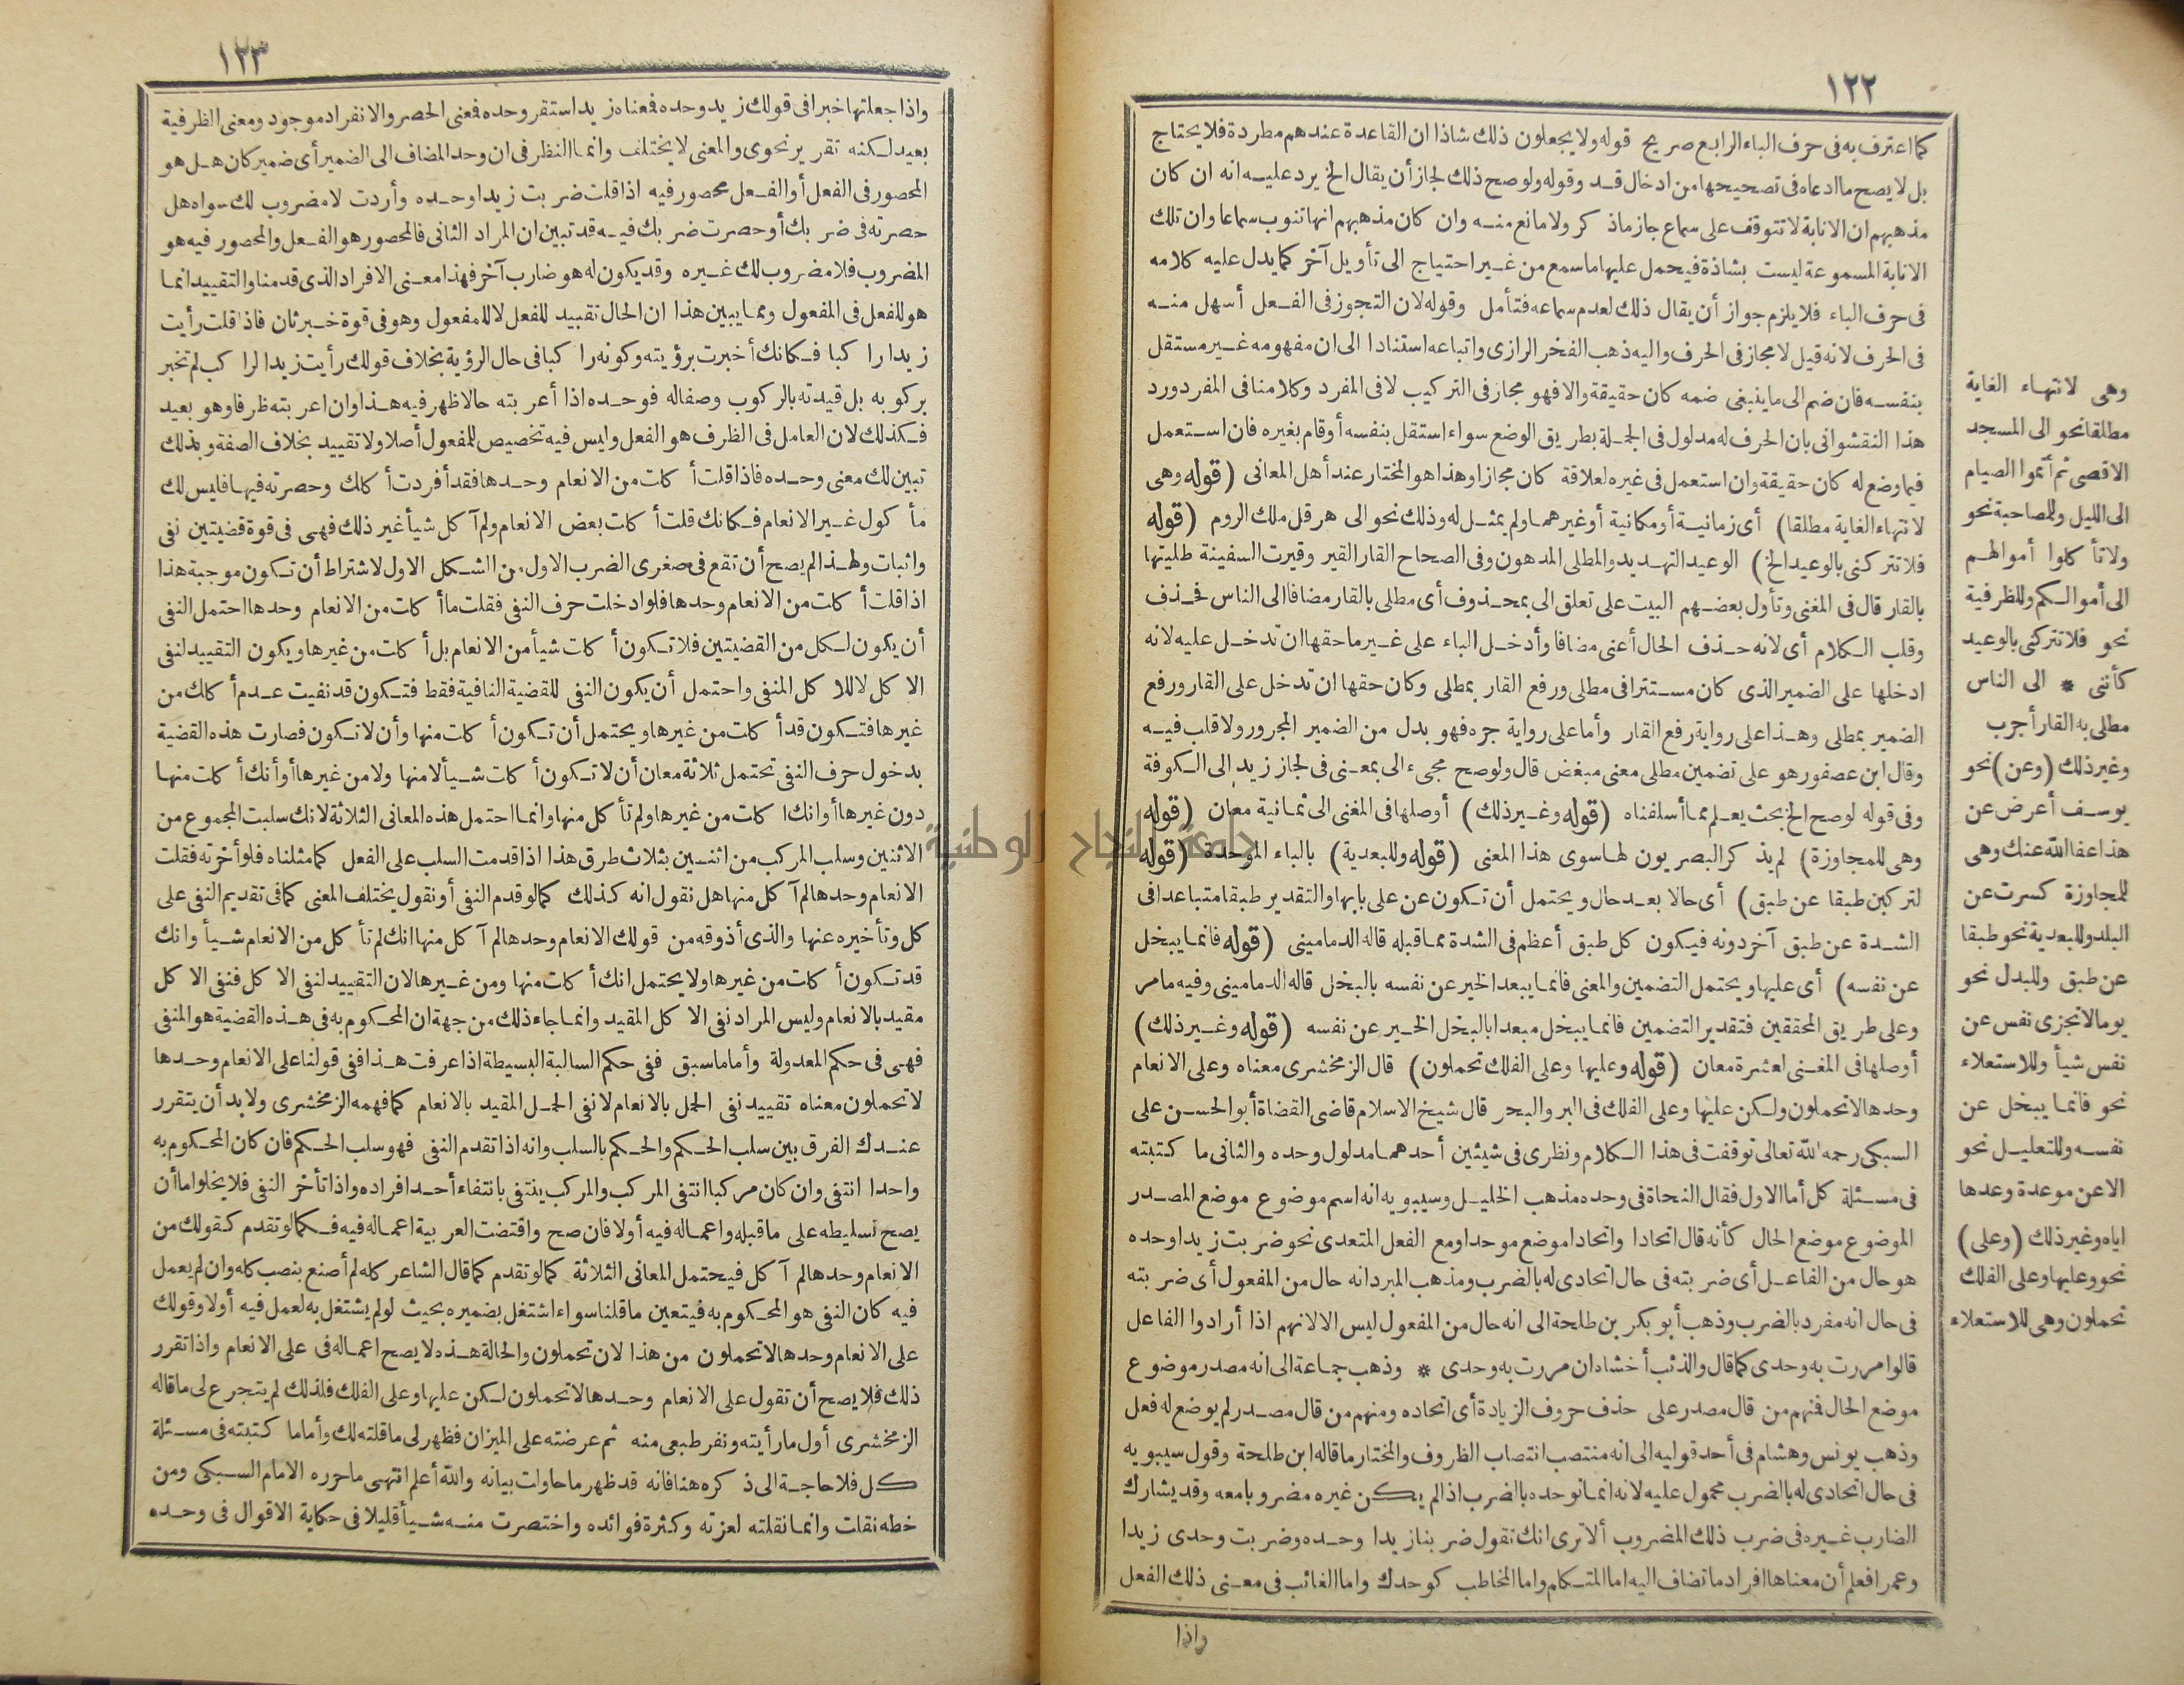 ١٢٢
كما اعترف به فى حرف الباء الرابع صريح قوله ولا يجعلون ذلك شاذا ان القاعدة عندهم مطردة فلا يحتاج
بل لا يصح ما ادعاه فى تصحيحها من ادخال قد وقوله ولو صح ذلك لجاز أن يقال الخ يرد عليه انه ان كان
مذهبهم ان الانابة لا تتوقف على سماع جاز ماذكر ولا مانع منه وان كان مذهبهم انها تنوب سماعا وان تلك
الانابة المسموعة ليست بشاذة فيحمل عليها ما سمع من غير احتياج الى تأويل آخر كما يدل عليه كلامه
فى حرف الباء فلا يلزم جواز أن يقال ذلك لعدم سماعه فتأمل وقوله لان التجوز فى الفعل أسهل منه
فى الحرف لانه قيل لا مجاز فى الحرف واليه ذهب الفخر الرازى واتباعه استنادا الى ان مفهومه غير مستقل
بنفسه فان ضم الى ما ينبغى ضمه كان حقيقة والا فهو مجاز فى التركيب لا فى المفرد وكلامنا فى المفرد ورد
هذا النقشوانى بان الحرف له مدلول فى الجملة بطريق الوضع سواء استقل بنفسه أو قام بغيره فان استعمل
فيما وضع له كان حقيقة وان استعمل فى غيره لعلاقة كان مجازا وهذا هو المختار عند أهل المعانى (قوله وهى
لانتهاء الغاية مطلقا) أى زمانية أو مكانية أو غيرهما ولم يمثل له وذلك نحو الى هرقل ملك الروم (قوله
فلا تتركنى بالوعيد الخ) الوعيد التهديد والمطلى المدهون وفى الصحاح القار القير وقيرت السفينة طليتها
بالقار قال فى المغنى وتأول بعضهم البيت على تعلق الى بمحذوف أى مطلى بالقار مضافا الى الناس فحذف
وقلب الكلام أى لانه حذف الحال أعنى مضافا وأدخل الباء على غير ما حقها ان تدخل عليه لانه
ادخلها على الضمير الذى كان مستترا فى مطلى ورفع القار بمطلى وكان حقها ان تدخل على القار ورفع
الضمير بمطلى وهذا على رواية رفع القار وأما على رواية جره فهو بدل من الضمير المجرور ولا قلب فيه
وقال ابن عصفور هو على تضمين مطلى معنى مبغض قال ولو صح مجىء الى بمعنى فى لجاز زيد الى الكوفة
وفى قوله لو صح الخ بحث يعلم مما أسلفناه (قوله وغير ذلك) أوصلها فى المغنى الى ثمانية معان (قوله
وهى للمجاوزة) لم يذكر البصريون لها سوى هذا المعنى (قوله وللبعدية) بالباء الموحدة (قوله
لتركبن طبقا عن طبق) أى حالا بعد حال ويحتمل أن تكون عن على بابها والتقدير طبقا متباعدا فى
الشدة عن طبق آخر دونه فيكون كل طبق أعظم فى الشدة مما قبله قاله الدمامينى (قوله فانما يبخل
عن نفسه) أى عليها ويحتمل التضمين والمعنى فانما يبعد الخير عن نفسه بالبخل قاله الدمامينى وفيه مامر
وعلى طريق المحققين فتقدير التضمين فانما يبخل مبعدا بالبخل الخير عن نفسه (قوله وغير ذلك)
أوصلها فى المغنى لعشرة معان (قوله وعليها وعلى الفلك تحملون) قال الزمخشرى معناه وعلى الانعام
وحدها لا تحملون ولكن عليها وعلى الفلك فى البر والبحر قال شيخ الاسلام قاضى القضاة أبو الحسن على
السبكى رحمه الله تعالى توقفت فى هذا الكلام ونظرى فى شيئين أحدهما مدلول وحده والثانى ما كتبته
فى مسئلة كل أما الاول فقال النحاة فى وحده مذهب الخليل وسيبويه انه اسم موضوع موضع المصدر
الموضوع موضع الحال كأنه قال اتحادا واتحادا موضع موحدا ومع الفعل المتعدى نحو ضربت زيدا وحده
هو حال من الفاعل أى ضربته فى حال اتحادى له بالضرب ومذهب المبرد انه حال من المفعول أى ضربته
فى حال انه مفرد بالضرب وذهب أبو بكر بن طلحة الى انه حال من المفعول ليس الا لانهم اذا أرادوا الفاعل
قالوا مررت به وحدى كما قال والذئب أخشاه ان مررت به وحدى * وذهب جماعة الى انه مصدر موضوع
موضع الحال فمنهم من قال مصدر على حذف حروف الزيادة أى اتحاده ومنهم من قال مصدر لم يوضع له فعل
وذهب يونس وهشام فى أحد قوليه الى انه منتصب انتصاب الظروف والمختار ما قاله ابن طلحة وقول سيبويه
فى حال اتحادى له بالضرب محمول عليه لانه انما توحده بالضرب اذا لم يكن غيره مضروبا معه وقد يشارك
الضارب غيره فى ضرب ذلك المضروب ألا ترى انك تقول ضربنا زيدا وحده وضربت وحدى زيدا
وعمرا فعلم أن معناها افراد ما تضاف اليه اما المتكلم واما المخاطب كوحدك واما الغائب فى معنى ذلك الفعل
واذا
وهى لانتهاء الغاية
مطلقا نحو الى المسجد
الاقصى ثم أتموا الصيام
الى الليل وللمصاحبة نحو
ولا تأكلوا أموالهم
الى أموالكم وللظرفية
نحو فلا تتركنى بالوعيد
كأننى * الى الناس
مطلى به القار أجرب
وغير ذلك (وعن) نحو
يوسف أعرض عن
هذا عفا الله عنك وهى
للمجاوزة كسرت عن
البلد وللبعدية نحو طبقا
عن طبق وللبدل نحو
يوما لا تجزى نفس عن
نفس شيأ وللاستعلاء
نحو فانما يبخل عن
نفسه وللتعليل نحو
الا عن موعدة وعدها
اياه وغير ذلك (وعلى)
نحو وعليها وعلى الفلك
تحملون وهى للاستعلاء
١٢٣
واذا جعلتها خبرا فى قولك زيد وحده فمعناه زيد استقر وحده فمعنى الحصر والانفراد موجود ومعنى الظرفية
بعيد لكنه تقرير نحوى والمعنى لا يختلف وانما النظر فى ان وحد المضاف الى الضمير أى ضمير كان هل هو
المحصور فى الفعل أو الفعل محصور فيه اذا قلت ضربت زيدا وحده وأردت لا مضروب لك سواه هل
حصرته فى ضربك أو حصرت ضربك فيه قد تبين ان المراد الثانى فالمحصور هو الفعل والمحصور فيه هو
المضروب فلا مضروب لك غيره وقد يكون له هو ضارب آخر فهذا معنى الافراد الذى قدمنا والتقييد انما
هو للفعل فى المفعول ومما يبين هذا ان الحال تقييد للفعل لا للمفعول وهو فى قوة خبر ثان فاذا قلت رأيت
زيدا راكبا فكانك أخبرت برؤيته وكونه راكبا فى حال الرؤية بخلاف قولك رأيت زيدا الراكب لم تخبر
بركوبه بل قيدته بالركوب وصفاله فوحده اذا أعربته حالا ظهر فيه هذا وان اعربته ظرفا وهو بعيد
فكذلك لان العامل فى الظرف هو الفعل وليس فيه تخصيص للمفعول أصلا ولا تقييد بخلاف الصفة وبذلك
تبين لك معنى وحده فاذا قلت أكلت من الانعام وحدها فقد أفردت أكلك وحصرته فيها فليس لك
مأكول غير الانعام فكانك قلت أكلت بعض الانعام ولم آكل شيأ غير ذلك فهى فى قوة قضيتين نفى
واثبات ولهذا لم يصح أن تقع فى صغرى الضرب الاول من الشكل الاول لاشتراط أن تكون موجبة هذا
اذا قلت أكلت من الانعام وحدها فلو ادخلت حرف النفى فقلت ما أكلت من الانعام وحدها احتمل النفى
أن يكون لكل من القضيتين فلا تكون أكلت شيأ من الانعام بل أكلت من غيرها ويكون التقييد لنفى
الاكل لا للاكل المنفى واحتمل أن يكون النفى للقضية النافية فقط فتكون قد نفيت عدم أكلك من
غيرها فتكون قد أكلت من غيرها ويحتمل أن تكون أكلت منها وأن لا تكون فصارت هذه القضية
بدخول حرف النفى تحتمل ثلاثة معان أن لا تكون أكلت شيأ لا منها ولا من غيرها أو أنك أكلت منها
دون غيرها أو انك اكلت من غيرها ولم تأكل منها وانما احتمل هذه المعانى الثلاثة لانك سلبت المجموع من
الاثنين وسلب المركب من اثنين بثلاث طرق هذا اذا قدمت السلب على الفعل كما مثلناه فلو أخرته فقلت
الانعام وحدها لم آكل منها هل نقول انه كذلك كما لو قدم النفى أو نقول يختلف المعنى كما فى تقديم النفى على
كل وتأخيره عنها والذى أذوقه من قولك الانعام وحدها لم آكل منها انك لم تأكل من الانعام شيأ وانك
قد تكون أكلت من غيرها ولا يحتمل انك أكلت منها ومن غيرها لان التقييد لنفى الاكل فنفى الاكل
مقيد بالانعام وليس المراد نفى الاكل المقيد وانما جاء ذلك من جهة ان المحكوم به فى هذه القضية هو المنفى
فهى فى حكم المعدولة وأما ما سبق ففى حكم السالبة البسيطة اذا عرفت هذا ففى قولنا على الانعام وحدها
لا تحملون معناه تقييد نفى الحمل بالانعام لا نفى الحمل المقيد بالانعام كما فهمه الزمخشرى ولا بد أن يتقرر
عندك الفرق بين سلب الحكم والحكم بالسلب وانه اذا تقدم النفى فهو سلب الحكم فان كان المحكوم به
واحدا انتفى وان كان مركبا انتفى المركب والمركب ينتفى بانتفاء أحد افراده واذا تأخر النفى فلا يخلو اما أن
يصح تسليطه على ما قبله واعماله فيه أولا فان صح واقتضت العربية اعماله فيه فكما لو تقدم كقولك من
الانعام وحدها لم آكل فيحتمل المعانى الثلاثة كما لو تقدم كما قال الشاعر كله لم أصنع بنصب كله وان لم يعمل
فيه كان النفى هو المحكوم به فيتعين ما قلنا سواء اشتغل بضميره بحيث لو لم يشتغل به لعمل فيه أولا وقولك
على الانعام وحدها لا تحملون من هذا لان تحملون والحالة هذه لا يصح اعماله فى على الانعام واذا تقرر
ذلك فلا يصح أن تقول على الانعام وحدها لا تحملون لكن عليها وعلى الفلك فلذلك لم يتجرع لى ما قاله
الزمخشرى أول ما رأيته ونفر طبعى منه ثم عرضته على الميزان فظهر لى ما قلته لك وأما ما كتبته فى مسئلة
كل فلا حاجة الى ذكره هنا فانه قد ظهر ما حاولت بيانه والله أعلم انتهى ما حرره الامام السبكى ومن
خطه نقلت وانما نقلته لعزته وكثرة فوائده واختصرت منه شيأ قليلا فى حكاية الاقوال فى وحده
جامعة النجاح الوطنية